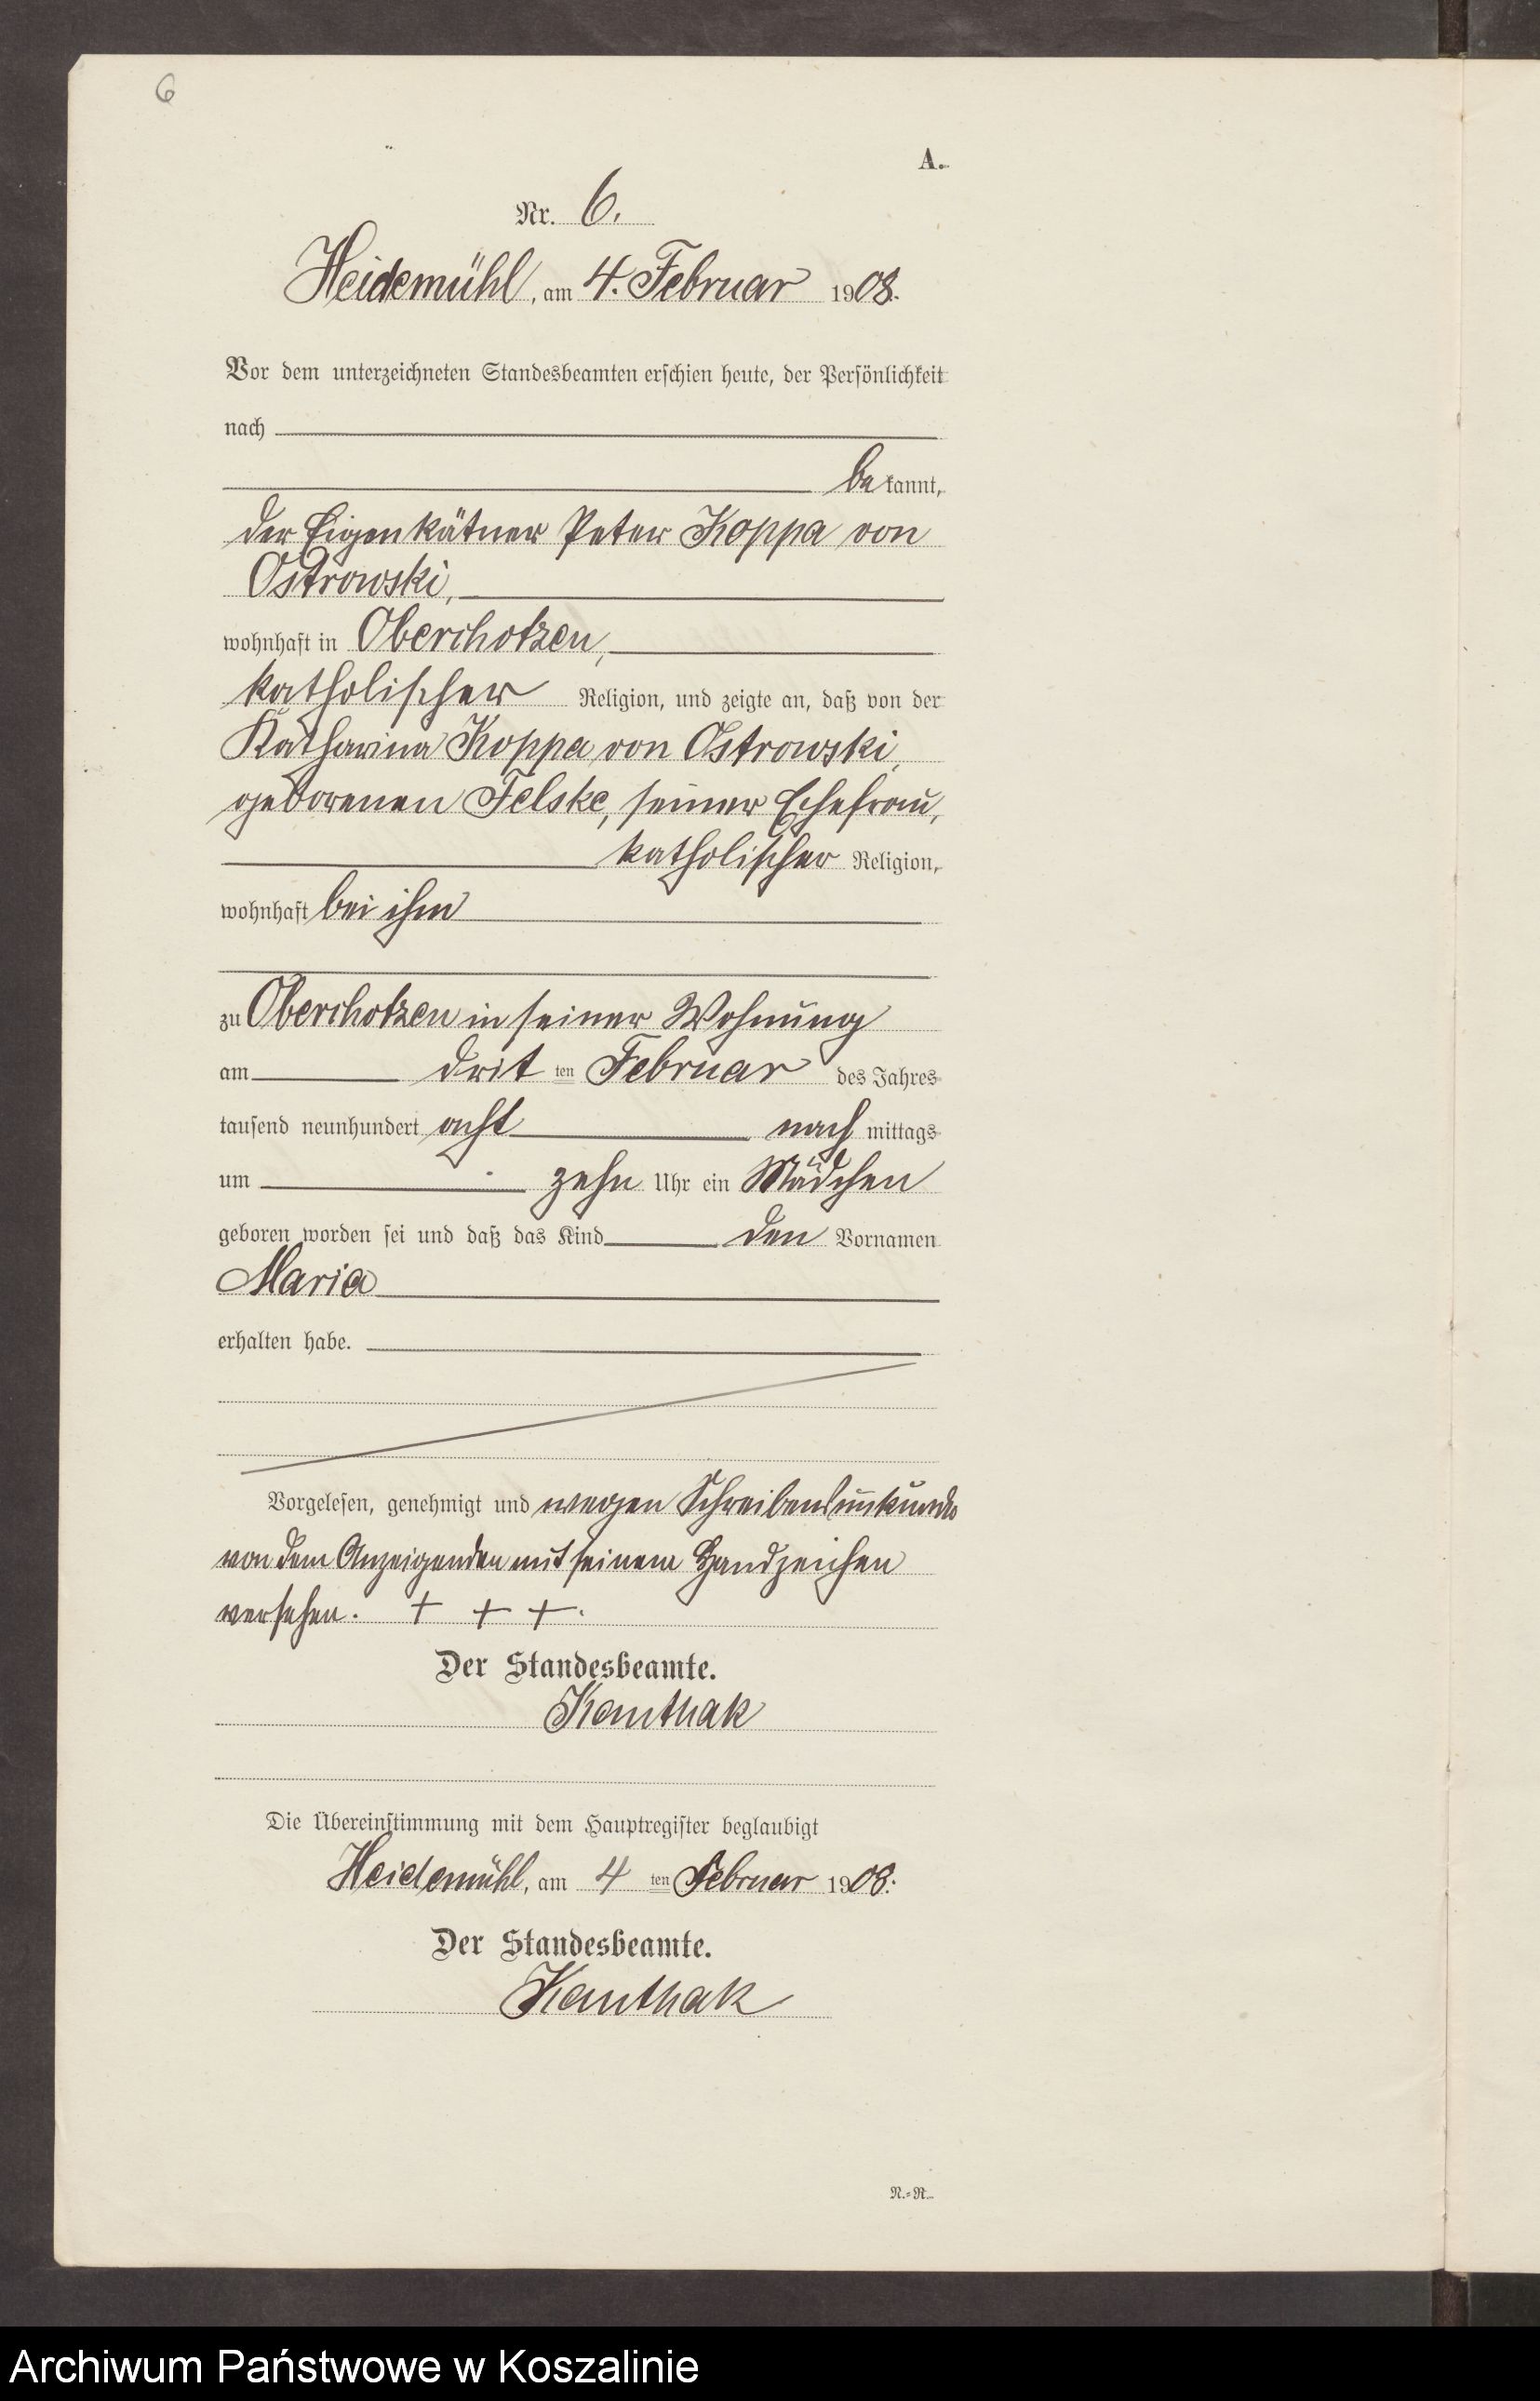 6
A.
Nr. 6.
Heidemühl, am 4. Februar 1908.
Vor dem unterzeichneten Standesbeamten erschien heute, der Persönlichkeit
nach
be kannt,
der Eigenkätner Peter Koppa von
Ostrowski,
wohnhaft in Oberchotzen,
katholischer Religion, und zeigte an, daß von der
Katharina Koppa von Ostrowski,
geborenen Felske, seiner Ehefrau,
katholischer Religion,
wohnhaft bei ihm
zu Oberchotzen in seiner Wohnung
am drit ten Februar des Jahres
tausend neunhundert acht nach mittags
um zehn Uhr ein Mädchen
geboren worden sei und daß das Kind den Vornamen
Maria
erhalten habe.
Vorgelesen, genehmigt und wegen Schreibensunkunde
von dem Anzeigenden mit seinem Handzeichen
versehen. + + +.
Der Standesbeamte.
Kanthak
Die Übereinstimmung mit dem Hauptregister beglaubigt
Heidemühl, am 4 ten Februar 1908.
Der Standesbeamte.
Kanthak
N.-R.
Archiwum Państwowe w Koszalinie